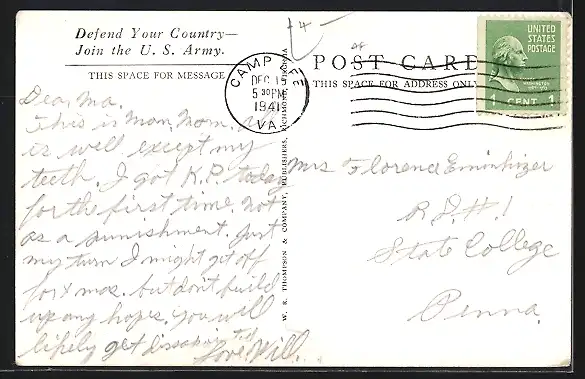 Defend Your Country—
Join the U. S. Army.
THIS SPACE FOR MESSAGE
Dear Ma.
This is Mon. Morn. All
is well except my
teeth. I got K.P. today
for the first time. Not
as a punishment. Just
my turn I might get off
for Xmas. but don't build
up any hopes. You will
likely get
Love Will.
W. R. THOMPSON & COMPANY, PUBLISHERS, RICHMOND, VIRGINIA
4-
CAMP LEE
DEC 15
5 30 PM
1941
VA.
POST CARD
THIS SPACE FOR ADDRESS ONLY
UNITED
STATES
POSTAGE
1 CENT 1
Mrs Florence Eminhizer
R D. # 1
State College
Penna.